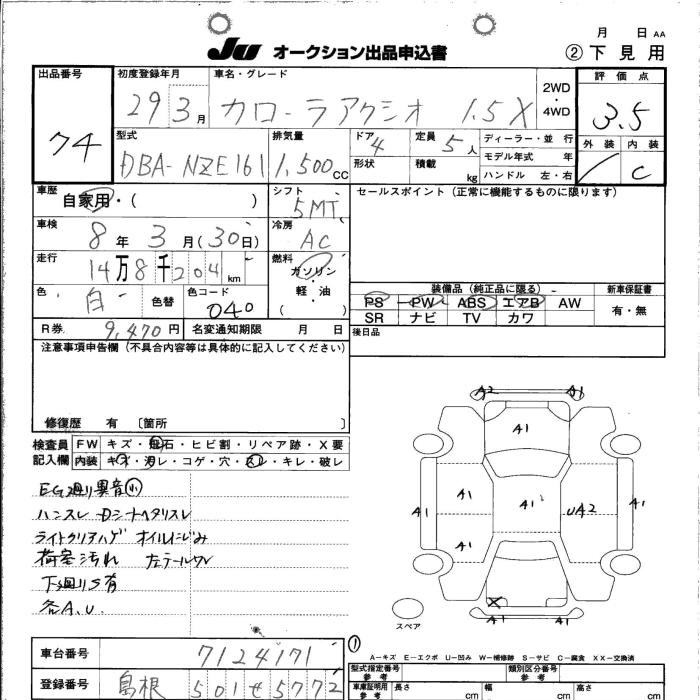 月 日 AA
JU オークション出品申込書 ②下見用
出品番号 初度登録年月 車名・グレード 2WD・4WD 評価点
74 29 3月 カローラアクシオ 1.5X 3.5
型式 排気量 ドア 定員 ディーラー・並行 外装 内装
DBA-NZE161 1,500cc 4 5人 モデル年式 年 C
形状 積載 kg ハンドル 左・右
車歴 自家用・( ) シフト 5MT セールスポイント(正常に機能するものに限ります)
車検 8年 3月(30日) 冷房 AC
走行 14万8千204km 燃料 ガソリン・軽油
色 白 色替 色コード 040 ( )
装備品(純正品に限る) 新車保証書
PS PW ABS エアB AW 有・無
SR ナビ TV カワ
R券 9,470円 名変通知期限 月 日 後日品
注意事項申告欄(不具合内容等は具体的に記入してください)
修復歴 有 〔箇所 〕
検査員記入欄 FW キズ・飛石・ヒビ割・リペア跡・X要
内装 キズ・汚レ・コゲ・穴・スレ・キレ・破レ
EG廻り異音小
ハンスレ Dシートヘタリスレ
ライトクリアハゲ オイルにじみ
荷室汚れ 左テールワレ
下廻りS有
各A.U.
A2 A1
A1
A1 A1 A1 UA2 A1
A1
X
A1
スペア
車台番号 7124171 ①
A-キズ E-エクボ U-凹み W-補修跡 S-サビ C-腐食 XX-交換済
登録番号 島根 501せ5772
型式指定番号 参考 類別区分番号 参考
車庫証明用 参考 長さ cm 幅 cm 高さ cm